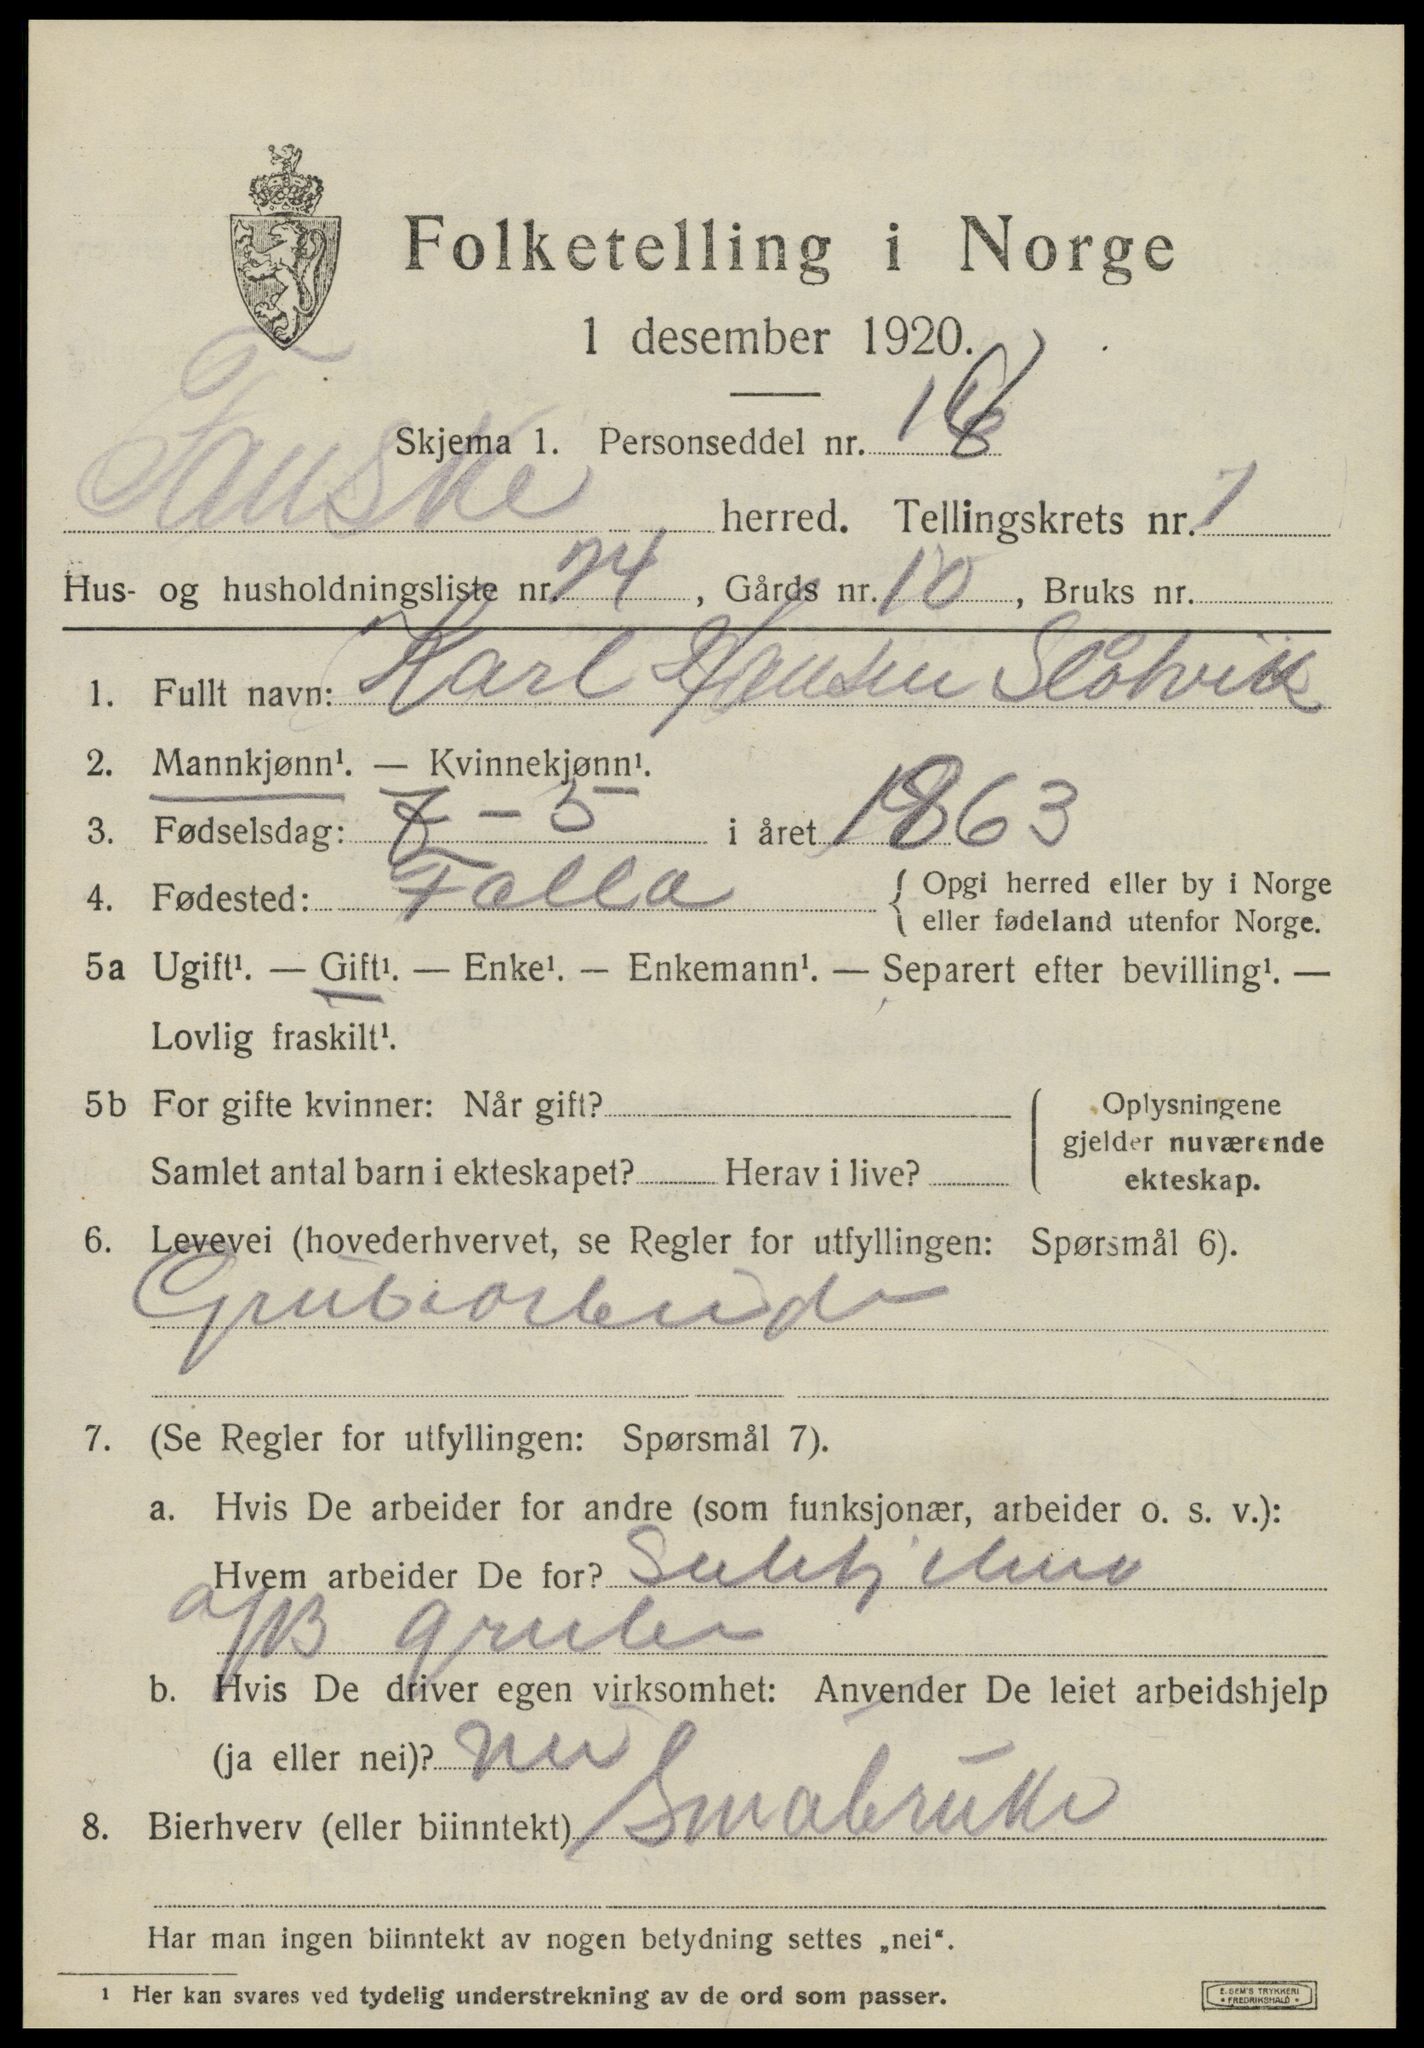 Folketelling i Norge
1 desember 1920.
Skjema 1. Personseddel nr.
Fauske herred. Tellingskrets nr. 7
Hus- og husholdningsliste nr. 74, Gårds nr. 10, Bruks nr.
1. Fullt navn: Karl Hansen Slåtvik
2. Mannkjønn¹. — Kvinnekjønn¹.
3. Fødselsdag: 7 – 5 i året 1863
4. Fødested: Folla { Opgi herred eller by i Norge
eller fødeland utenfor Norge.
5a Ugift¹. — Gift¹. — Enke¹. — Enkemann¹. — Separert efter bevilling¹. —
Lovlig fraskilt¹.
5b For gifte kvinner: Når gift? Oplysningene
gjelder nuværende
Samlet antal barn i ekteskapet? Herav i live? ekteskap.
6. Levevei (hovederhvervet, se Regler for utfyllingen: Spørsmål 6).
Grubearbeider
7. (Se Regler for utfyllingen: Spørsmål 7).
a. Hvis De arbeider for andre (som funksjonær, arbeider o. s. v.):
Hvem arbeider De for? Sulitjelma
a/B gruber
b. Hvis De driver egen virksomhet: Anvender De leiet arbeidshjelp
(ja eller nei)? nei
8. Bierhverv (eller biinntekt) Småbruker
Har man ingen biinntekt av nogen betydning settes „nei“.
¹ Her kan svares ved tydelig understrekning av de ord som passer.
E. SEM'S TRYKKERI
• FREDRIKSHALD •